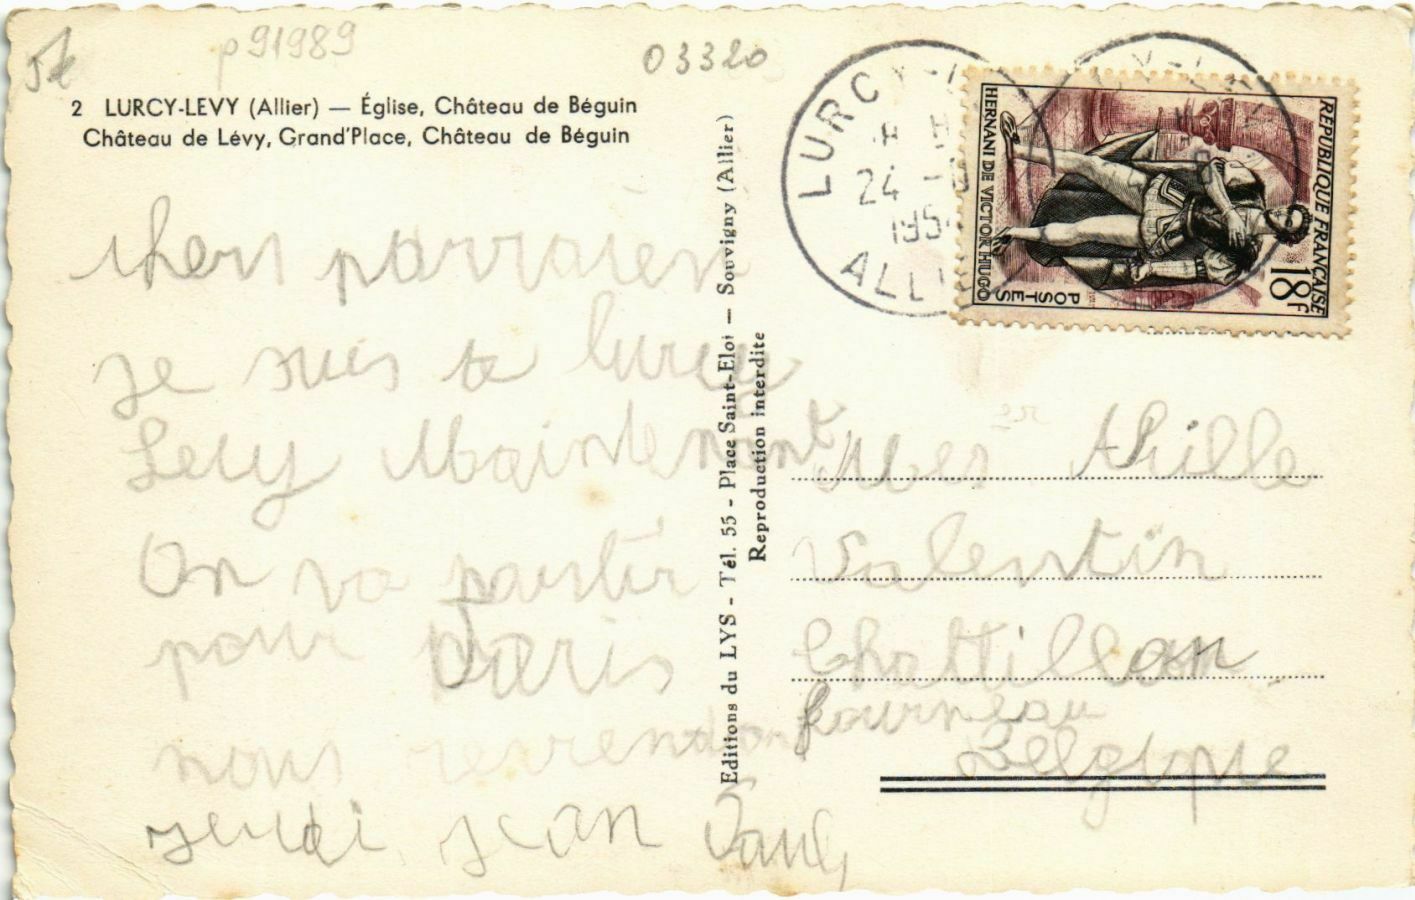 5€
p91989
03320
2 LURCY-LEVY (Allier) — Église, Château de Béguin
Château de Lévy, Grand'Place, Château de Béguin
chers parraien
je suis te lurcy
Levy Maintenant
On va partir
pour Paris
nous revendon
jeudi jean Paul
Editions du LYS - Tél. 55 - Place Saint-Eloi — Souvigny (Allier)
Reproduction interdite
LURCY-L
24 -
195
ALLI
RÉPUBLIQUE FRANÇAISE
18F
POSTES
HERNANI DE VICTOR HUGO
Valentin
Chattillon
fourneau
Belgique